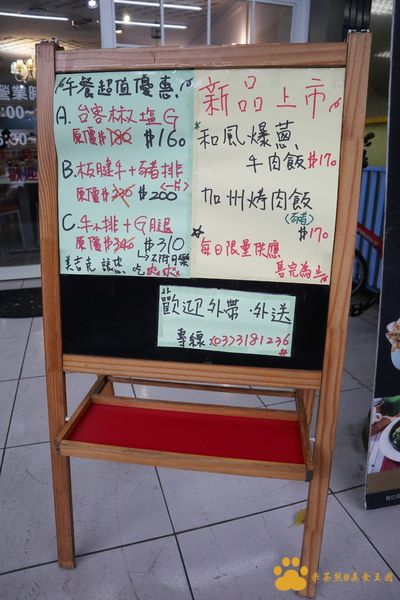 午餐超值優惠!
A. 台客椒塩G
原價$180 $160
B. 板腱牛+豬排
原價$230 $200 (一片)
C. 牛小排+G腿
原價$340 $310
美吉克 讓您 吃
新品上市
和風爆蔥
牛肉飯$170
加州烤肉飯
(豬)
$170
每日限量供應
售完為止
歡迎外帶.外送
專線:(03)3181236
米茶熊@美食王國